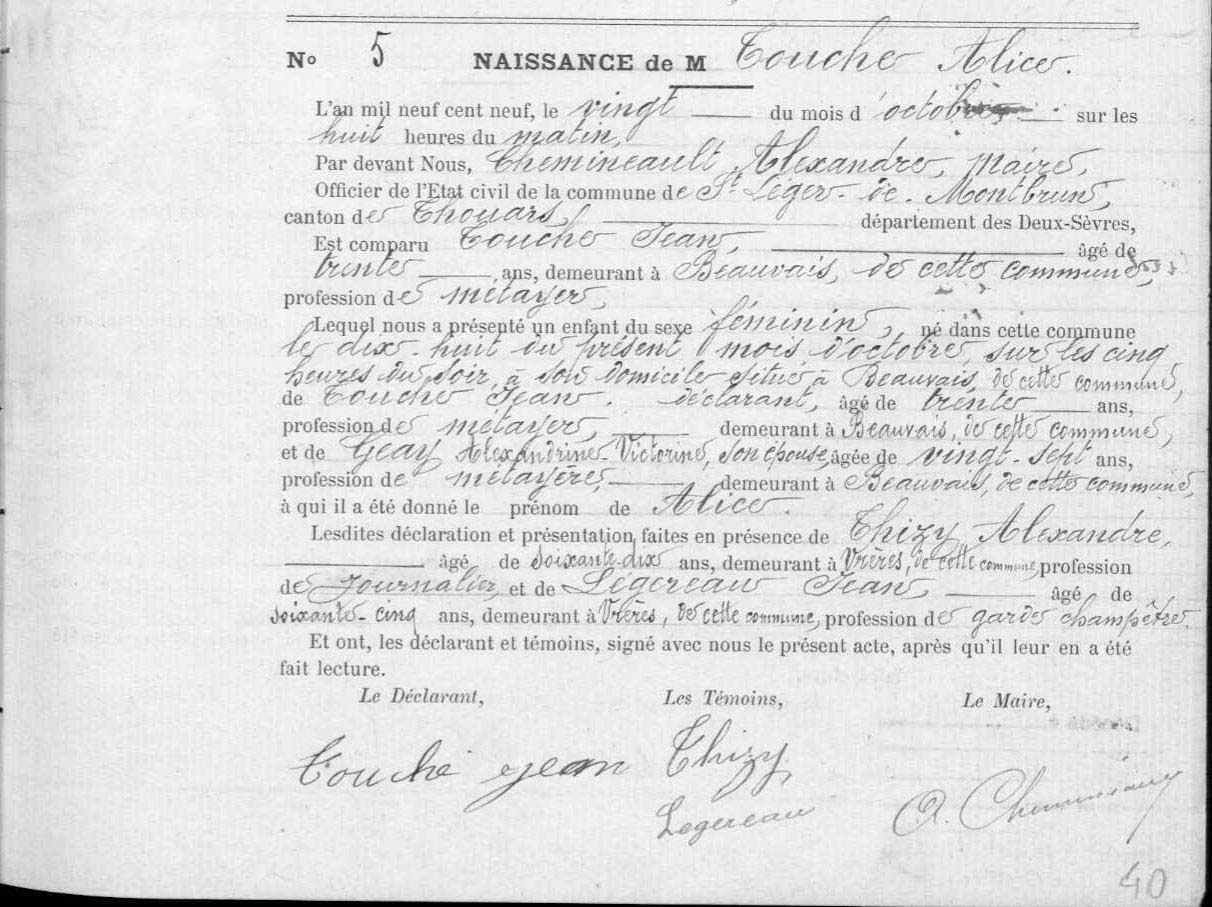 No 5 NAISSANCE de M Touche Alice.
L'an mil neuf cent neuf, le vingt du mois d'octobre sur les
huit heures du matin,
Par devant Nous, Chemineault Alexandre, Maire,
Officier de l'Etat civil de la commune de St. Léger-de-Montbrun,
canton de Thouars, département des Deux-Sèvres,
Est comparu Touche Jean, âgé de
trente ans, demeurant à Beauvais, de cette commune,
profession de métayer,
Lequel nous a présenté un enfant du sexe féminin, né dans cette commune
le dix-huit du présent mois d'octobre, sur les cinq
heures du soir, à son domicile situé à Beauvais, de cette commune,
de Touche Jean. déclarant, âgé de trente ans,
profession de métayer, demeurant à Beauvais, de cette commune,
et de Geay Alexandrine-Victorine, son épouse, âgée de vingt-sept ans,
profession de métayère, demeurant à Beauvais, de cette commune,
à qui il a été donné le prénom de Alice.
Lesdites déclaration et présentation faites en présence de Thizy Alexandre,
âgé de soixante-dix ans, demeurant à Vrères, de cette commune, profession
de journalier, et de Légereau Jean, âgé de
soixante-cinq ans, demeurant à Vrères, de cette commune, profession de garde champêtre.
Et ont, les déclarant et témoins, signé avec nous le présent acte, après qu'il leur en a été
fait lecture.
Le Déclarant, Les Témoins, Le Maire,
Touche jean Thizy
Legereau A.
40